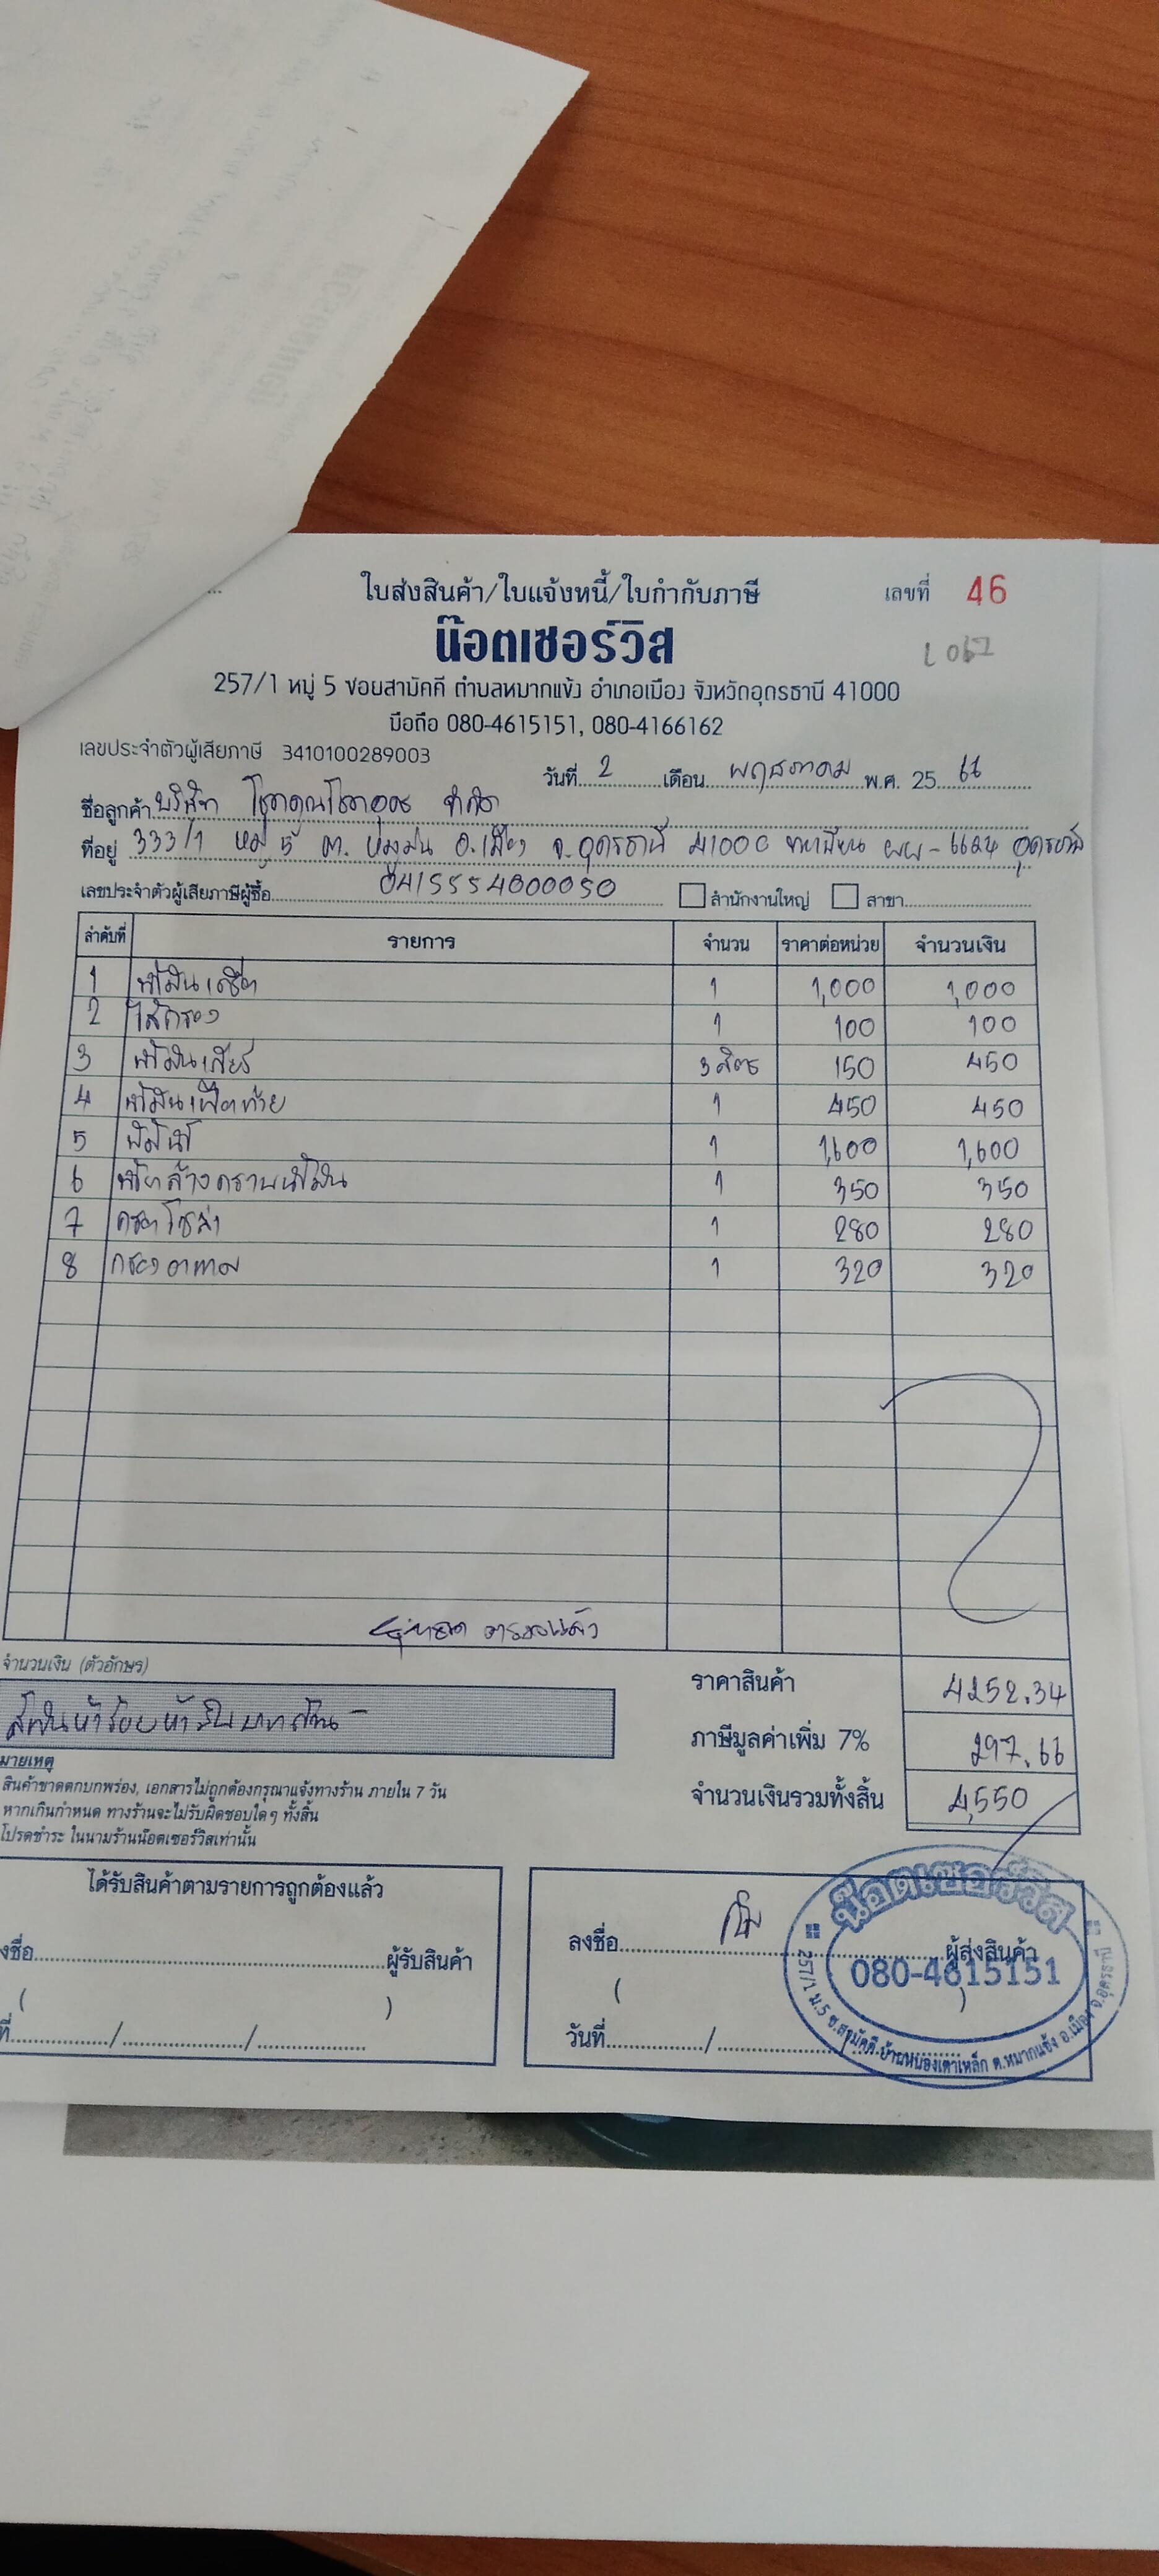 ใบส่งสินค้า/ใบแจ้งหนี้/ใบกำกับภาษี
เลขที่ 46
น๊อตเซอร์วิส
257/1 หมู่ 5 ซอยสามัคคี ตำบลหมากแข้ง อำเภอเมือง จังหวัดอุดรธานี 41000
มือถือ 080-4615151, 080-4166162
เลขประจำตัวผู้เสียภาษี 3410100289003
วันที่ 2 เดือน พฤษภาคม พ.ศ. 25 66
ชื่อลูกค้า บริษัท จำกัด
ที่อยู่ 333/1 หมู่ 5 ต. หมูม่น อ.เมือง จ.อุดรธานี 41000 ทะเบียน ผผ-6624 อุดรธานี
เลขประจำตัวผู้เสียภาษีผู้ซื้อ 0415554000050 สำนักงานใหญ่ สาขา
ลำดับที่ รายการ จำนวน ราคาต่อหน่วย จำนวนเงิน
1 น้ำมันเครื่อง 1 1,000 1,000
2 ไส้กรอง 1 100 100
3 น้ำมันเกียร์ 3 ลิตร 150 450
4 น้ำมันเฟืองท้าย 1 450 450
5 1 1,600 1,600
6 น้ำยาล้างคราบน้ำมัน 1 350 350
7 1 280 280
8 กรองอากาศ 1 320 320
จำนวนเงิน (ตัวอักษร)
สี่พันห้าร้อยห้าสิบบาทถ้วน
ราคาสินค้า 4252.34
ภาษีมูลค่าเพิ่ม 7% 297.66
จำนวนเงินรวมทั้งสิ้น 4,550
มายเหตุ
สินค้าขาดตกบกพร่อง, เอกสารไม่ถูกต้องกรุณาแจ้งทางร้าน ภายใน 7 วัน
หากเกินกำหนด ทางร้านจะไม่รับผิดชอบใดๆ ทั้งสิ้น
โปรดชำระ ในนามร้านน๊อตเซอร์วิสเท่านั้น
ได้รับสินค้าตามรายการถูกต้องแล้ว
งชื่อ ผู้รับสินค้า
( )
ที่ / /
ลงชื่อ ผู้ส่งสินค้า
( )
วันที่ / /
น๊อตเซอร์วิส
080-4615151
257/1 ม.5 ซ.สามัคคี-บ้านหนองเตาเหล็ก ต.หมากแข้ง อ.เมือง จ.อุดรธานี